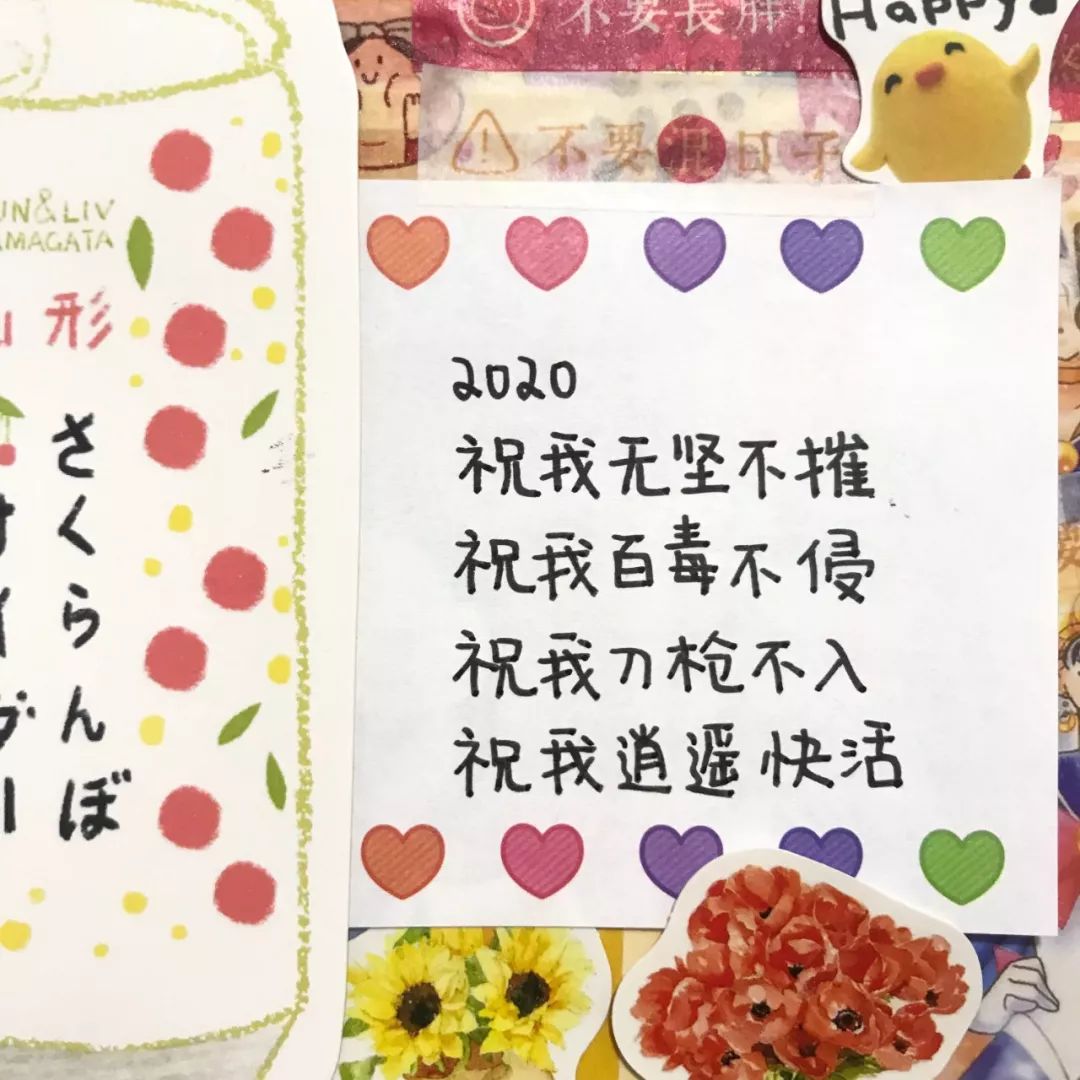 不要長胖!
Happy
不要混日子
UN&LIV
AMAGATA
山形
さくらんぼ
サイダー
2020
祝我无坚不摧
祝我百毒不侵
祝我刀枪不入
祝我逍遥快活